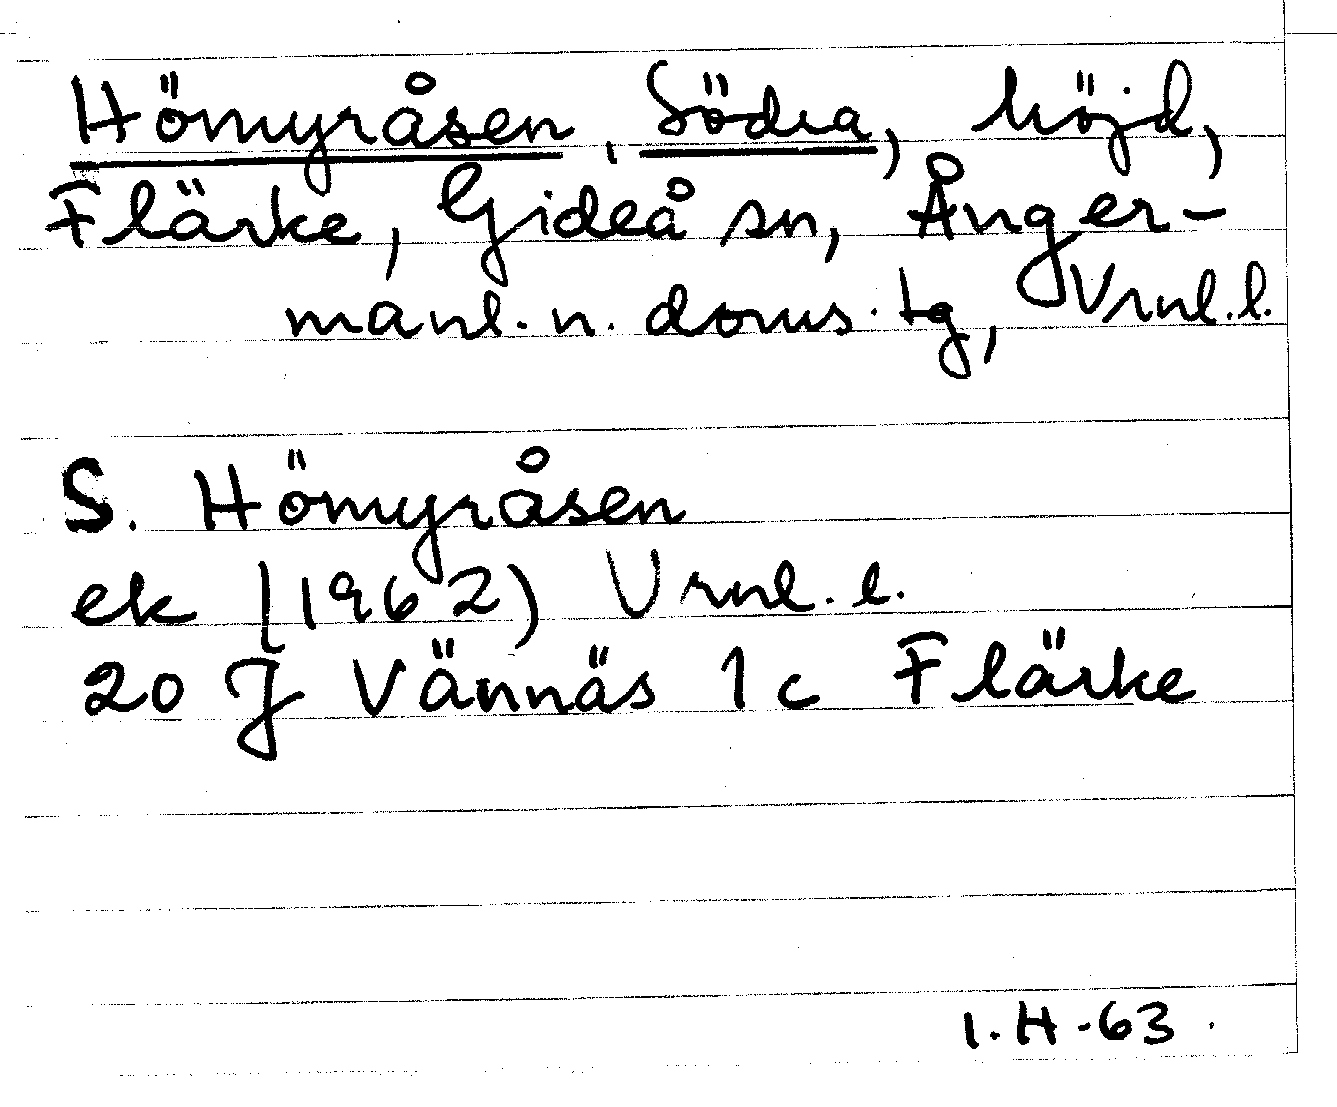 Hömyråsen, Södra, höjd,
Flärke, Gideå sn, Ånger-
manl. n. doms. tg, Vrnl. l.
S. Hömyråsen
ek (1962) Vrnl. l.
20 J Vännäs 1 c Flärke
I.H-63.